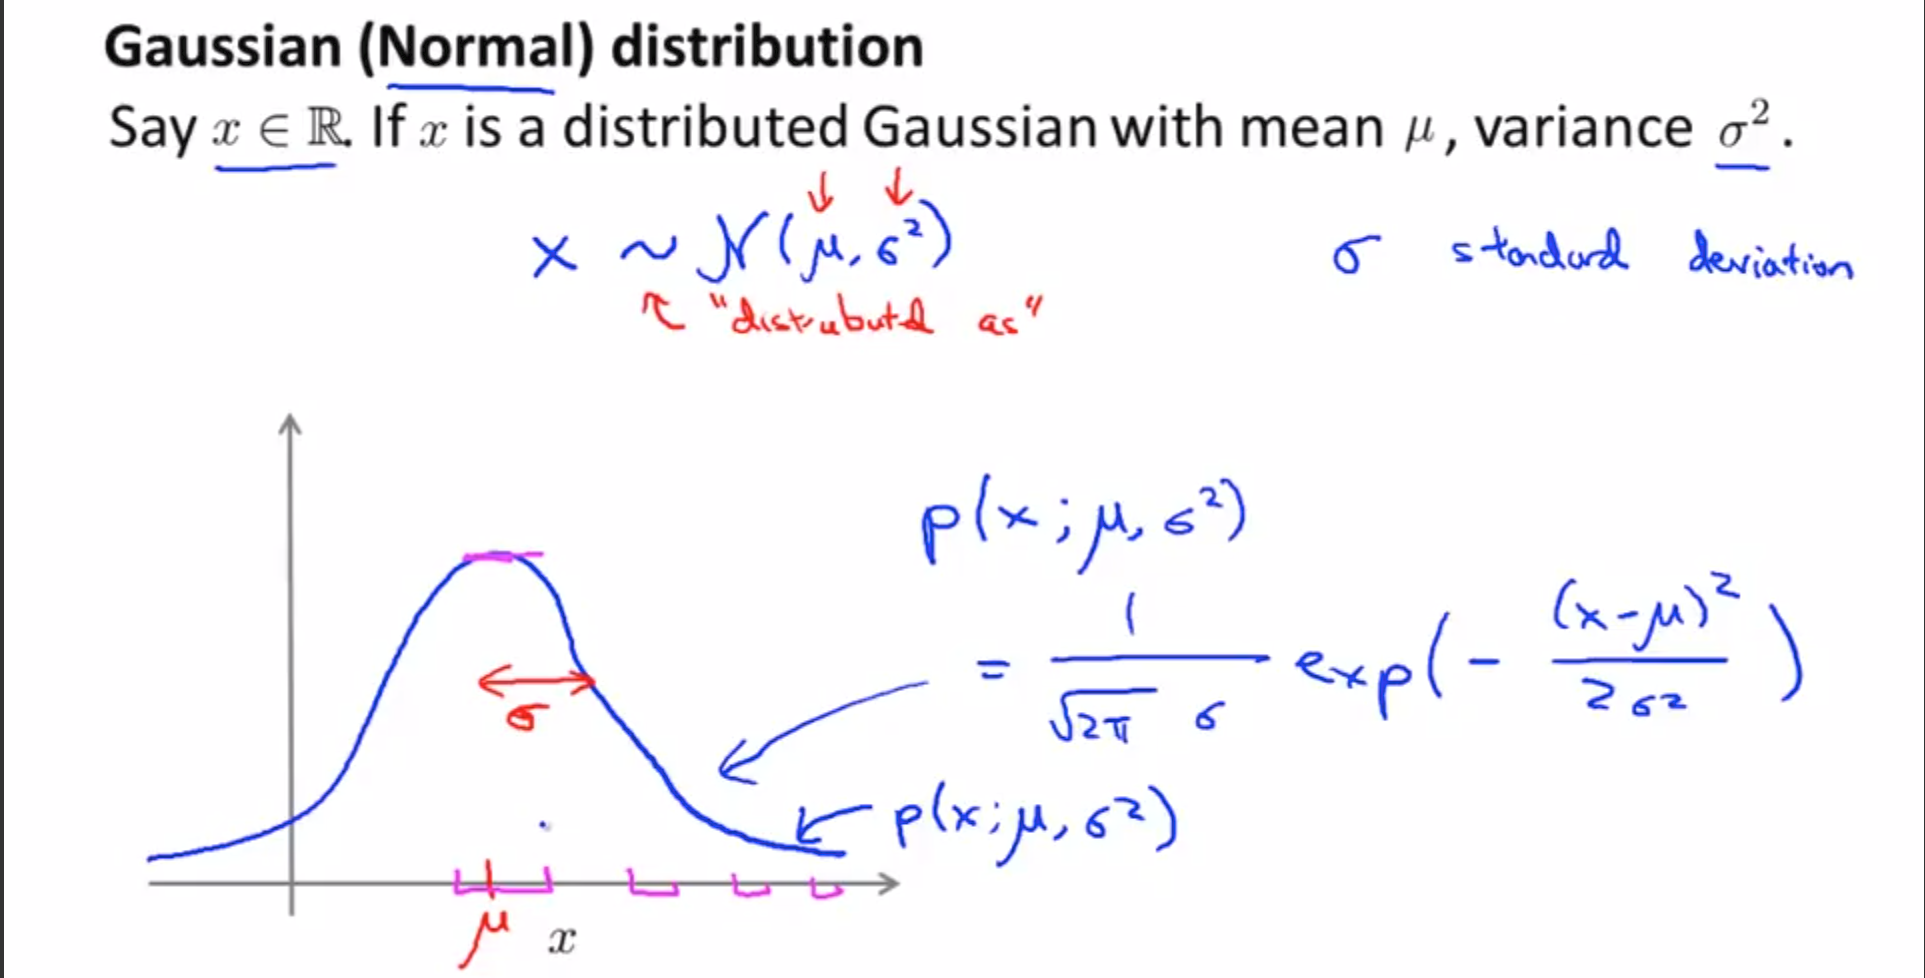 Gaussian (Normal) distribution
Say x ∈ ℝ. If x is a distributed Gaussian with mean μ, variance σ².
x ~ N(μ, σ²)
σ standard deviation
"distributed as"
p(x; μ, σ²)
= 1/(√2π σ) exp(- (x-μ)²/2σ²)
σ
p(x; μ, σ²)
μ x